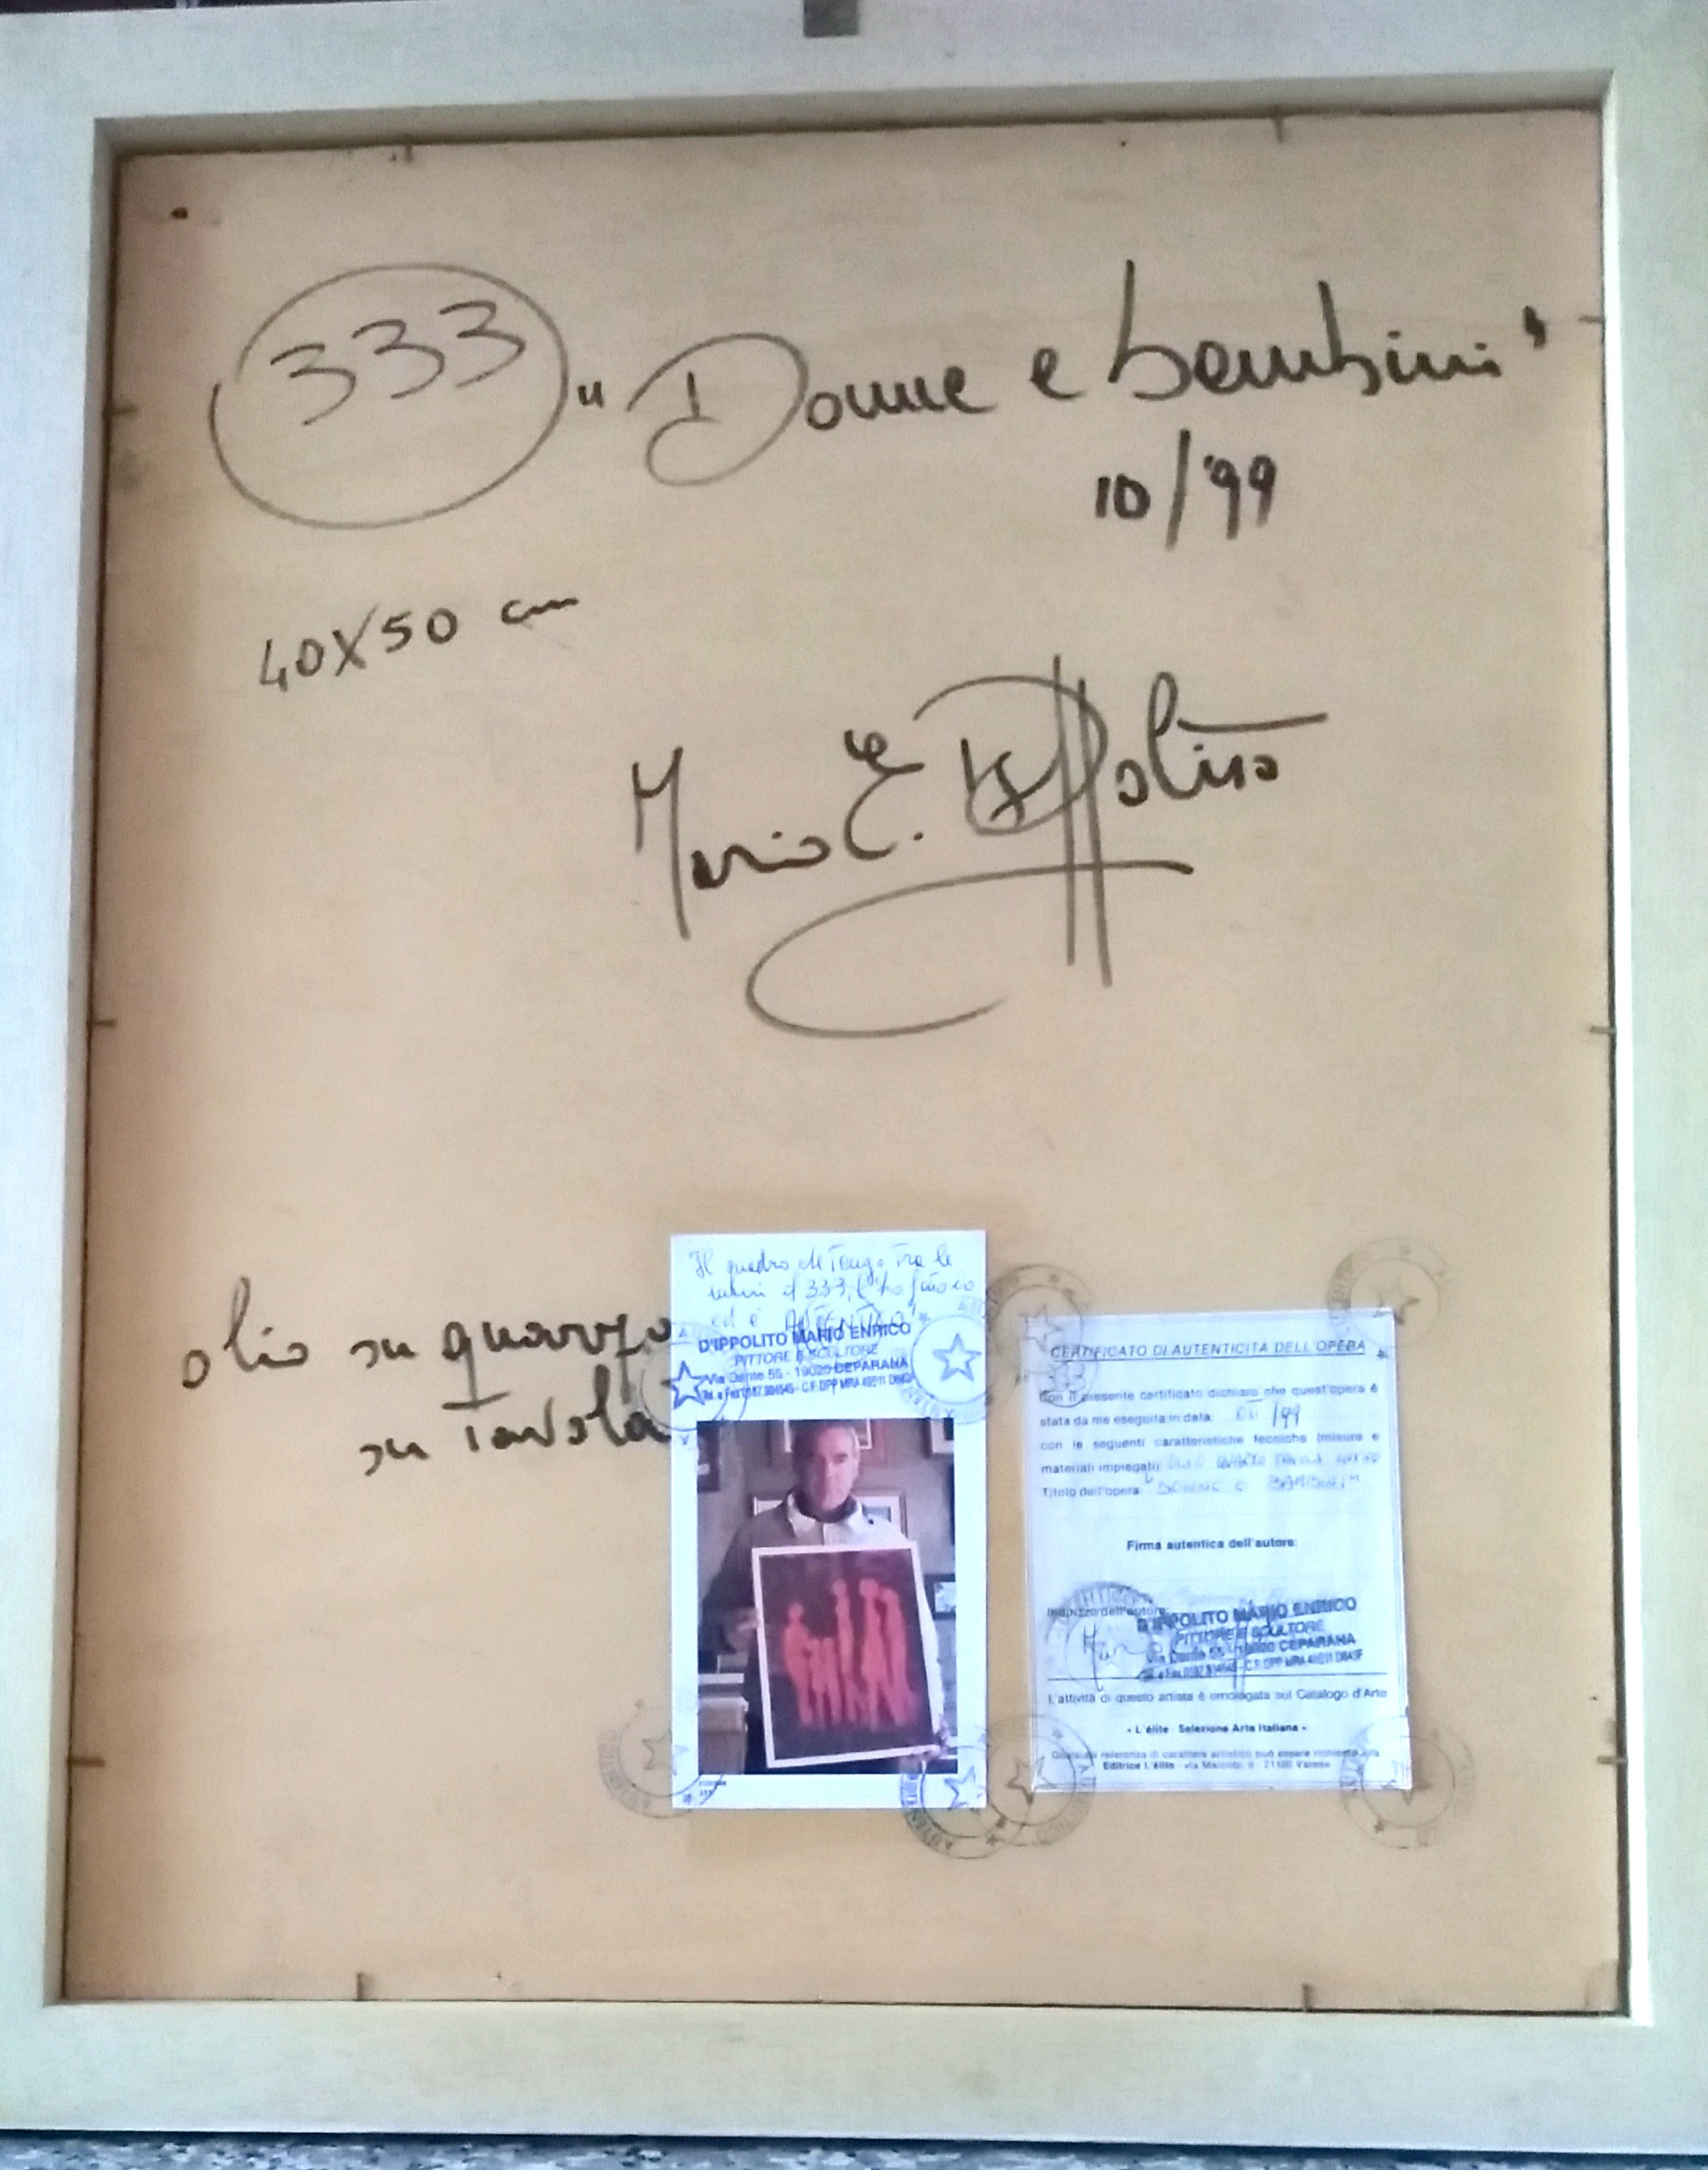 333 "Donne e bambini"
10/'99
40X50 cm
Mario E. D'Ippolito
olio su quarzo
su tavola
Il quadro che tengo tra le
mani il 333, l'ho fatto io
ed è AUTENTICO!
D'IPPOLITO MARIO ENRICO
PITTORE E SCULTORE
Via Dante 55 - 19020 CEPARANA
CERTIFICATO DI AUTENTICITA DELL'OPERA
333
Con il presente certificato dichiaro che quest'opera è
stata da me eseguita in data: /99
con le seguenti caratteristiche tecniche (misure e
materiali impiegati): OLIO QUARZO TAVOLA
Titolo dell'opera: "DONNE E BAMBINI"
Firma autentica dell'autore:
Indirizzo dell'autore:
D'IPPOLITO MARIO ENRICO
PITTORE E SCULTORE
Via Dante 55 - 19020 CEPARANA
L'attività di questo artista è omologata sul Catalogo d'Arte
« L'élite - Selezione Arte Italiana »
Qualsiasi referenza di carattere artistico può essere richiesta alla
Editrice L'élite - via 21100 Varese